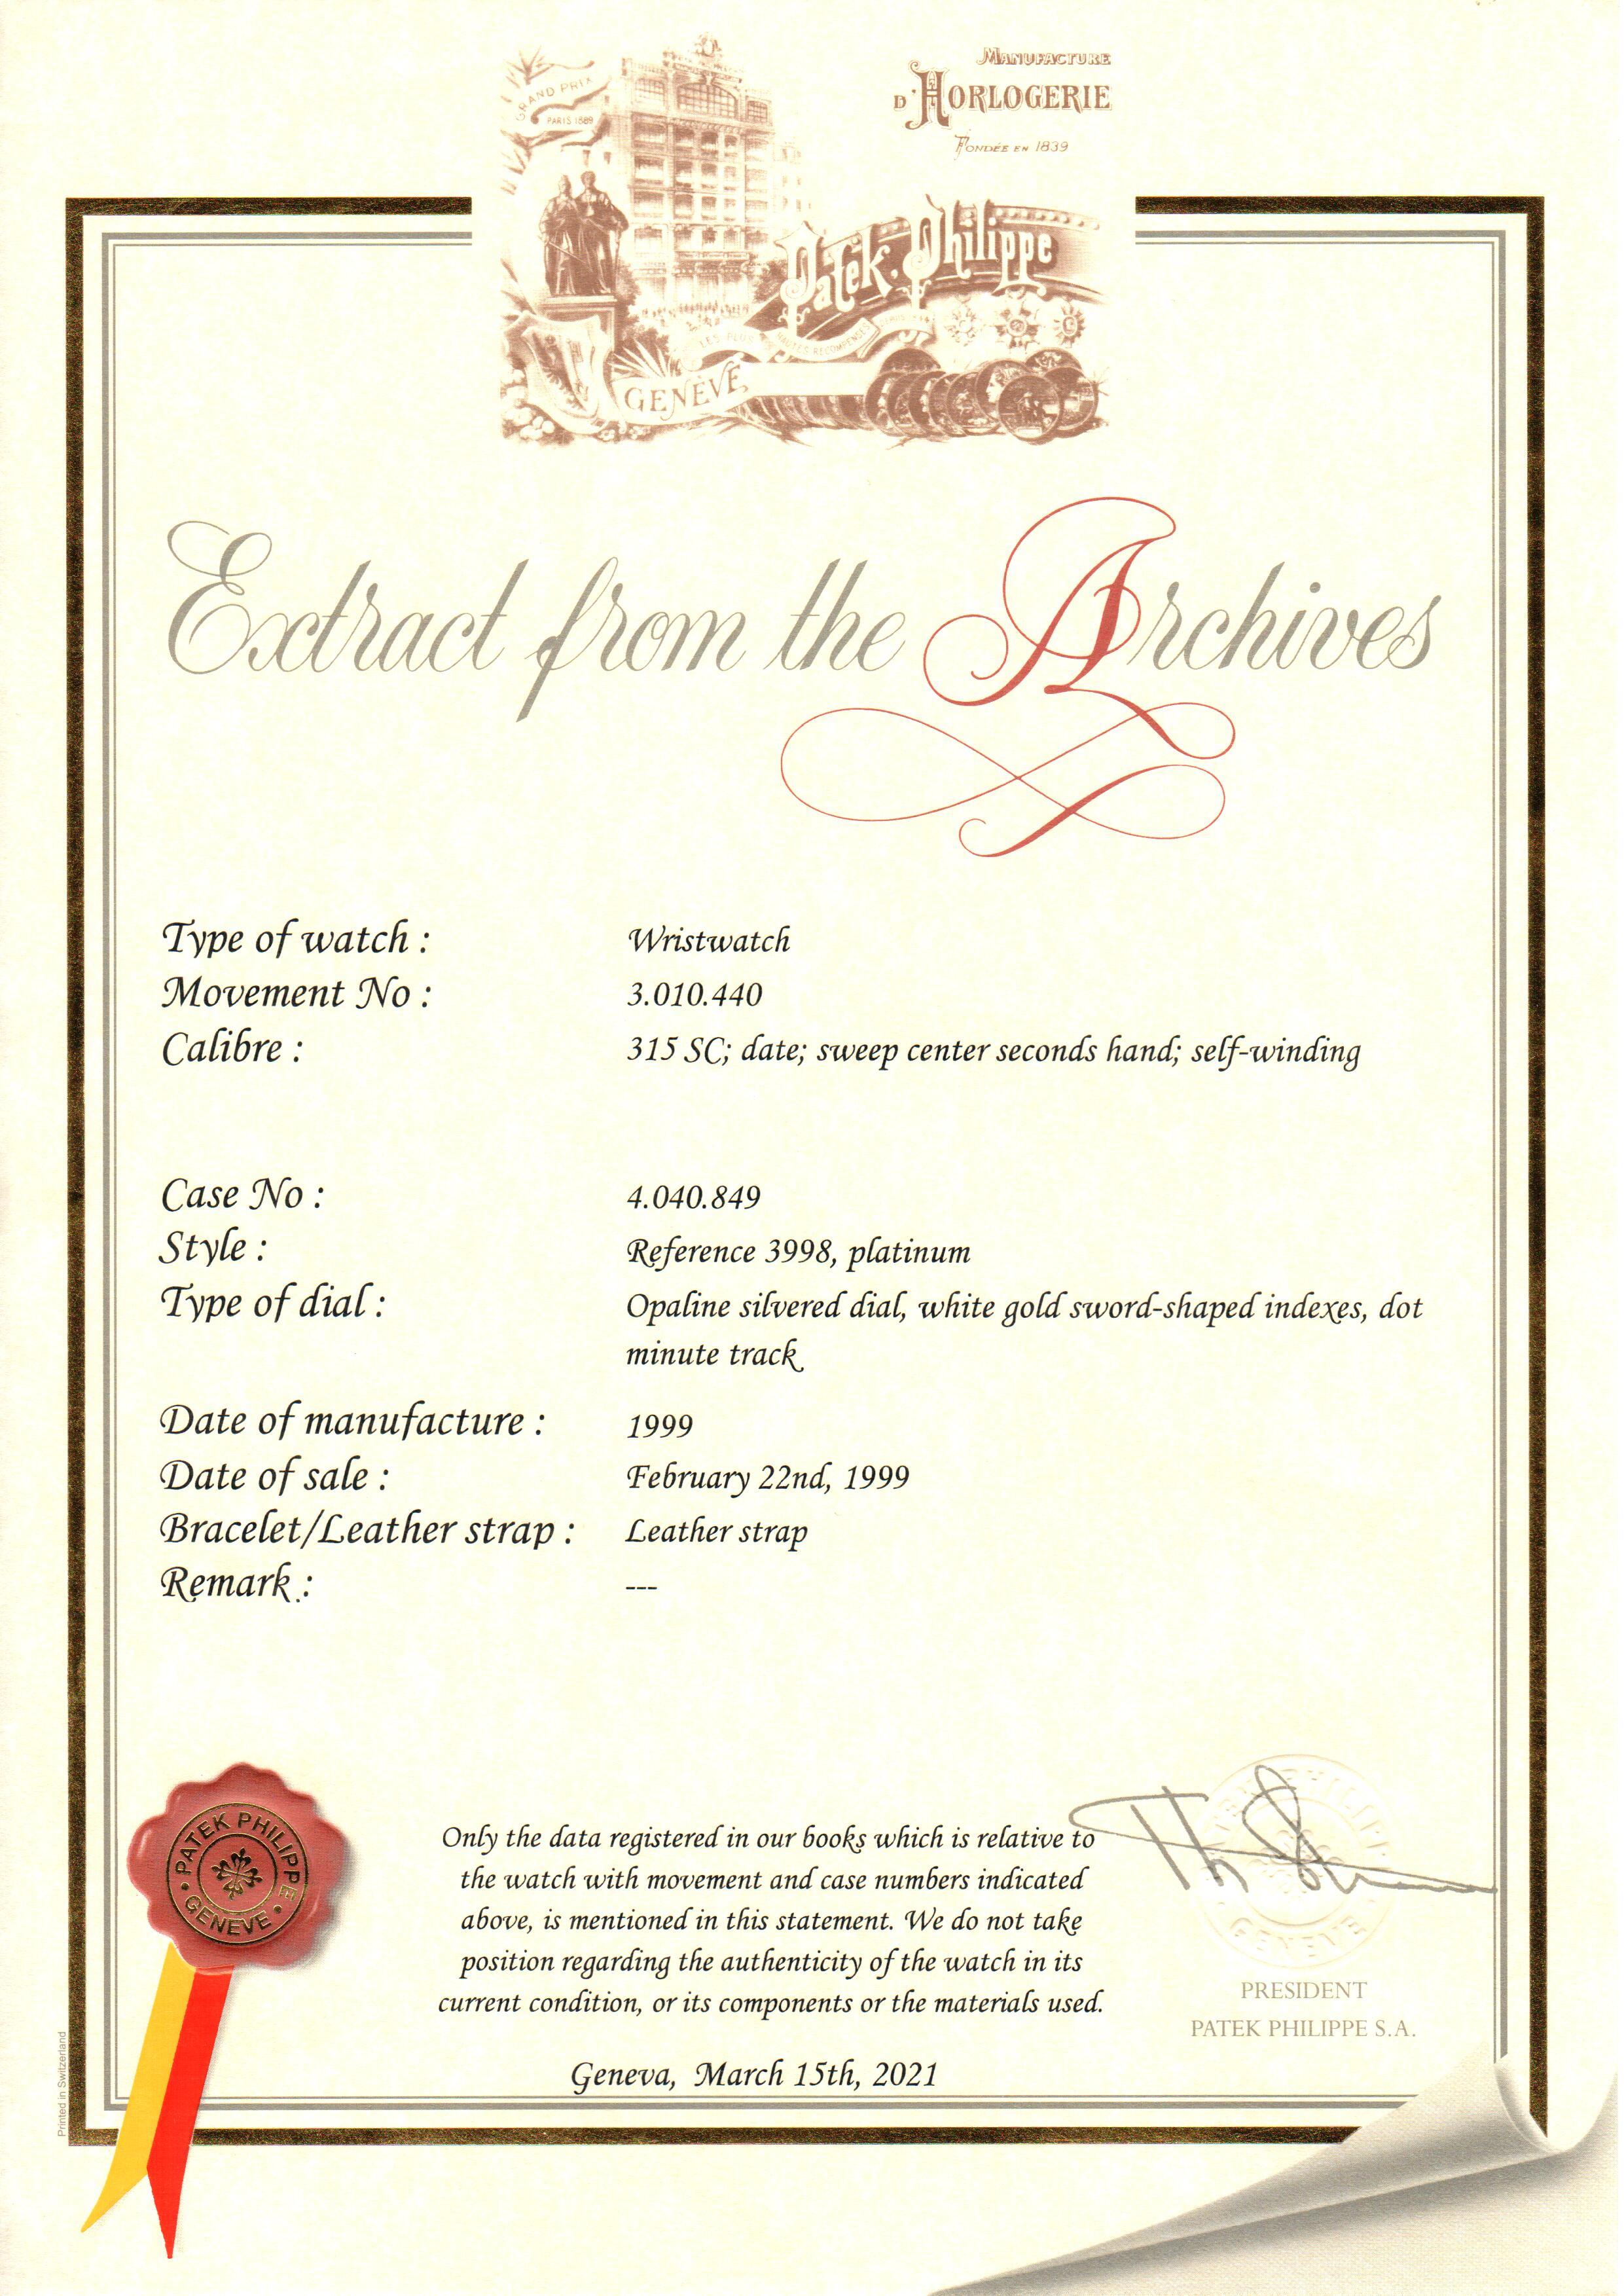 GRAND PRIX
PARIS 1889
MANUFACTURE
D'HORLOGERIE
FONDÉE EN 1839
Patek. Philippe
LES PLUS HAUTES RECOMPENSES
GENÈVE
Extract from the Archives
Type of watch : Wristwatch
Movement No : 3.010.440
Calibre : 315 SC; date; sweep center seconds hand; self-winding
Case No : 4.040.849
Style : Reference 3998, platinum
Type of dial : Opaline silvered dial, white gold sword-shaped indexes, dot
minute track
Date of manufacture : 1999
Date of sale : February 22nd, 1999
Bracelet/Leather strap : Leather strap
Remark : ---
PATEK PHILIPPE
GENEVE
Only the data registered in our books which is relative to
the watch with movement and case numbers indicated
above, is mentioned in this statement. We do not take
position regarding the authenticity of the watch in its
current condition, or its components or the materials used.
GENEVE
PRESIDENT
PATEK PHILIPPE S.A.
Geneva, March 15th, 2021
Printed in Switzerland